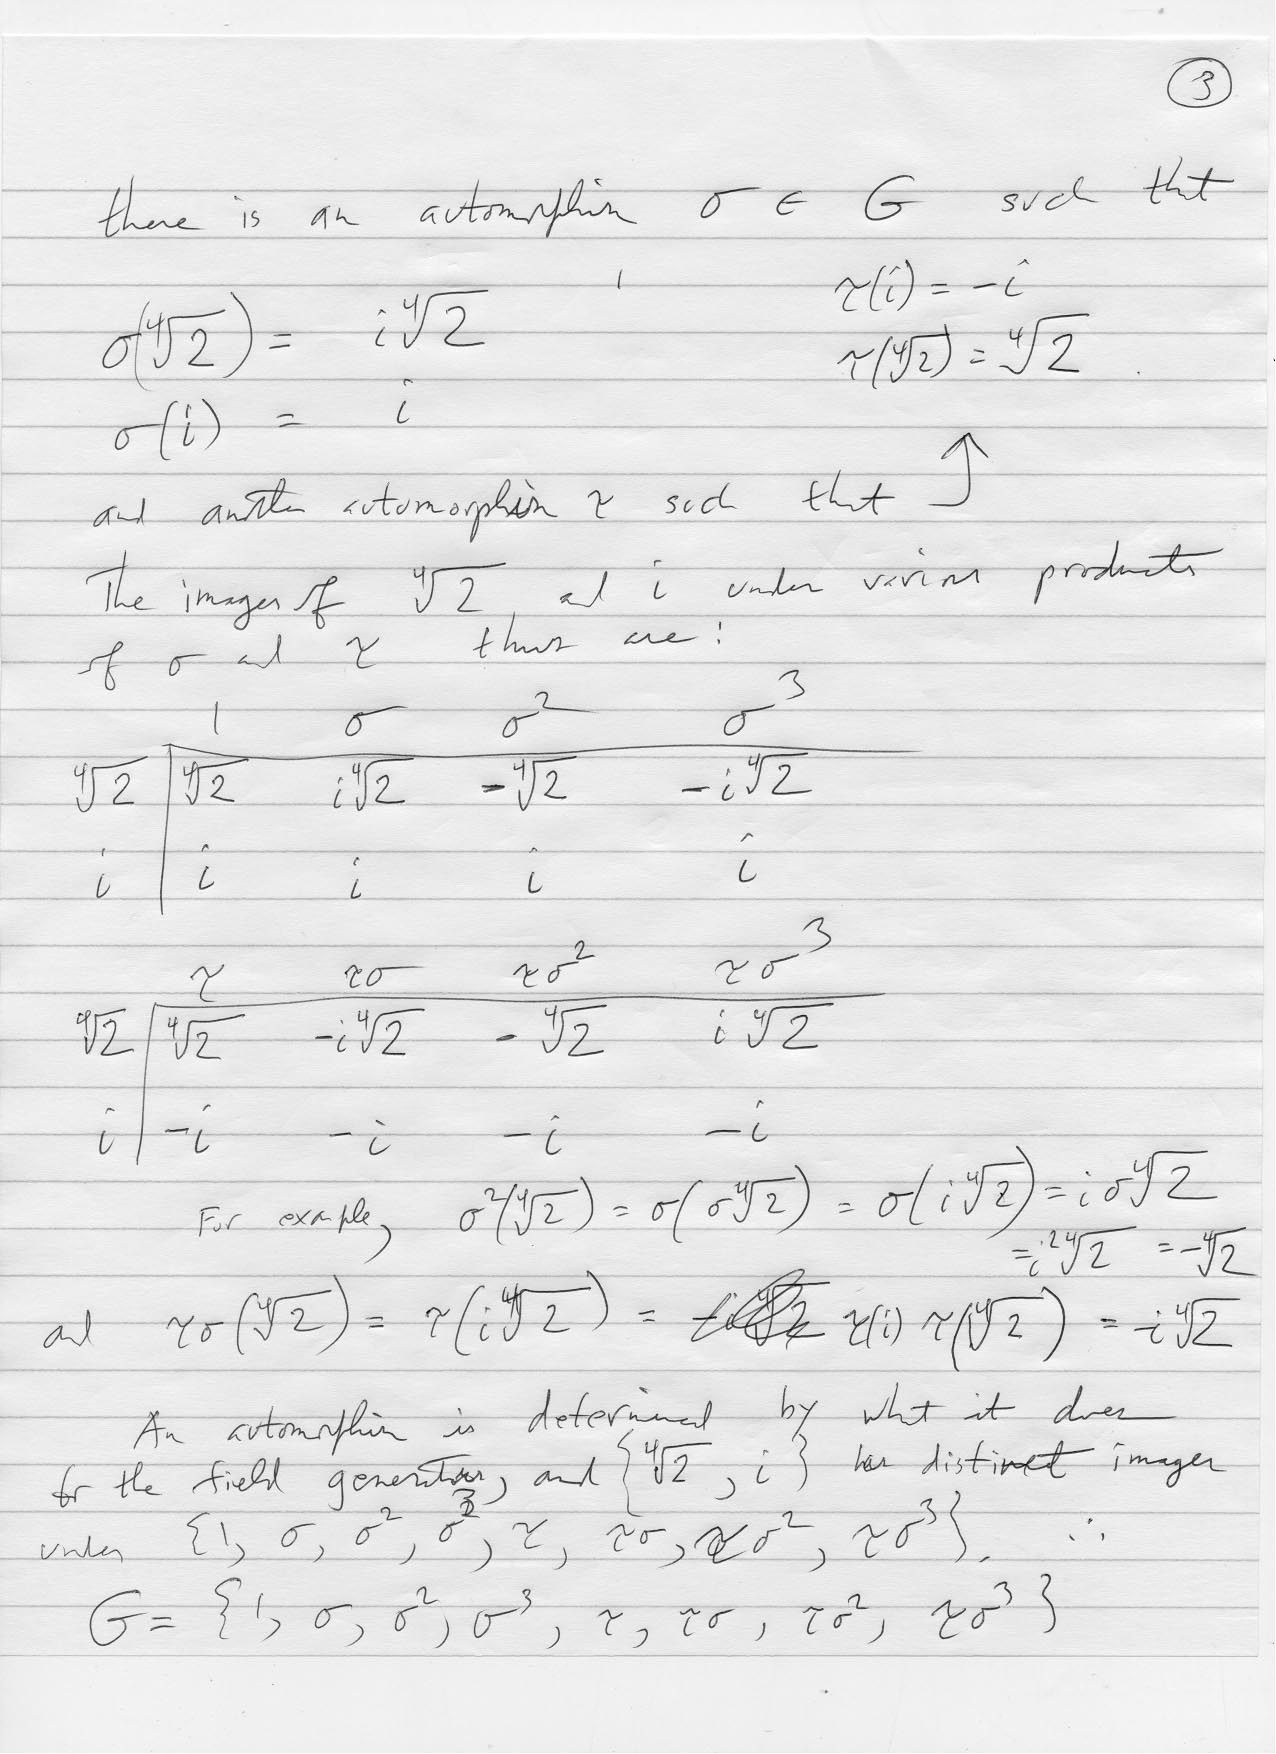 3
there is an automorphism σ ∈ G such that
σ(∜2) = i∜2
σ(i) = i
τ(i) = -i
τ(∜2) = ∜2
and another automorphism τ such that ↑
The images of ∜2 and i under various products
of σ and τ thus are:
1 σ σ² σ³
∜2 | ∜2 i∜2 -∜2 -i∜2
i | i i i i
τ τσ τσ² τσ³
∜2 | ∜2 -i∜2 -∜2 i∜2
i | -i -i -i -i
For example, σ²(∜2) = σ(σ∜2) = σ(i∜2) = iσ∜2
= i²∜2 = -∜2
and τσ(∜2) = τ(i∜2) = τ(i) τ(∜2) = -i∜2
An automorphism is determined by what it does
for the field generators, and {∜2, i} has distinct images
under {1, σ, σ², σ³, τ, τσ, τσ², τσ³}. ∴
G = {1, σ, σ², σ³, τ, τσ, τσ², τσ³}